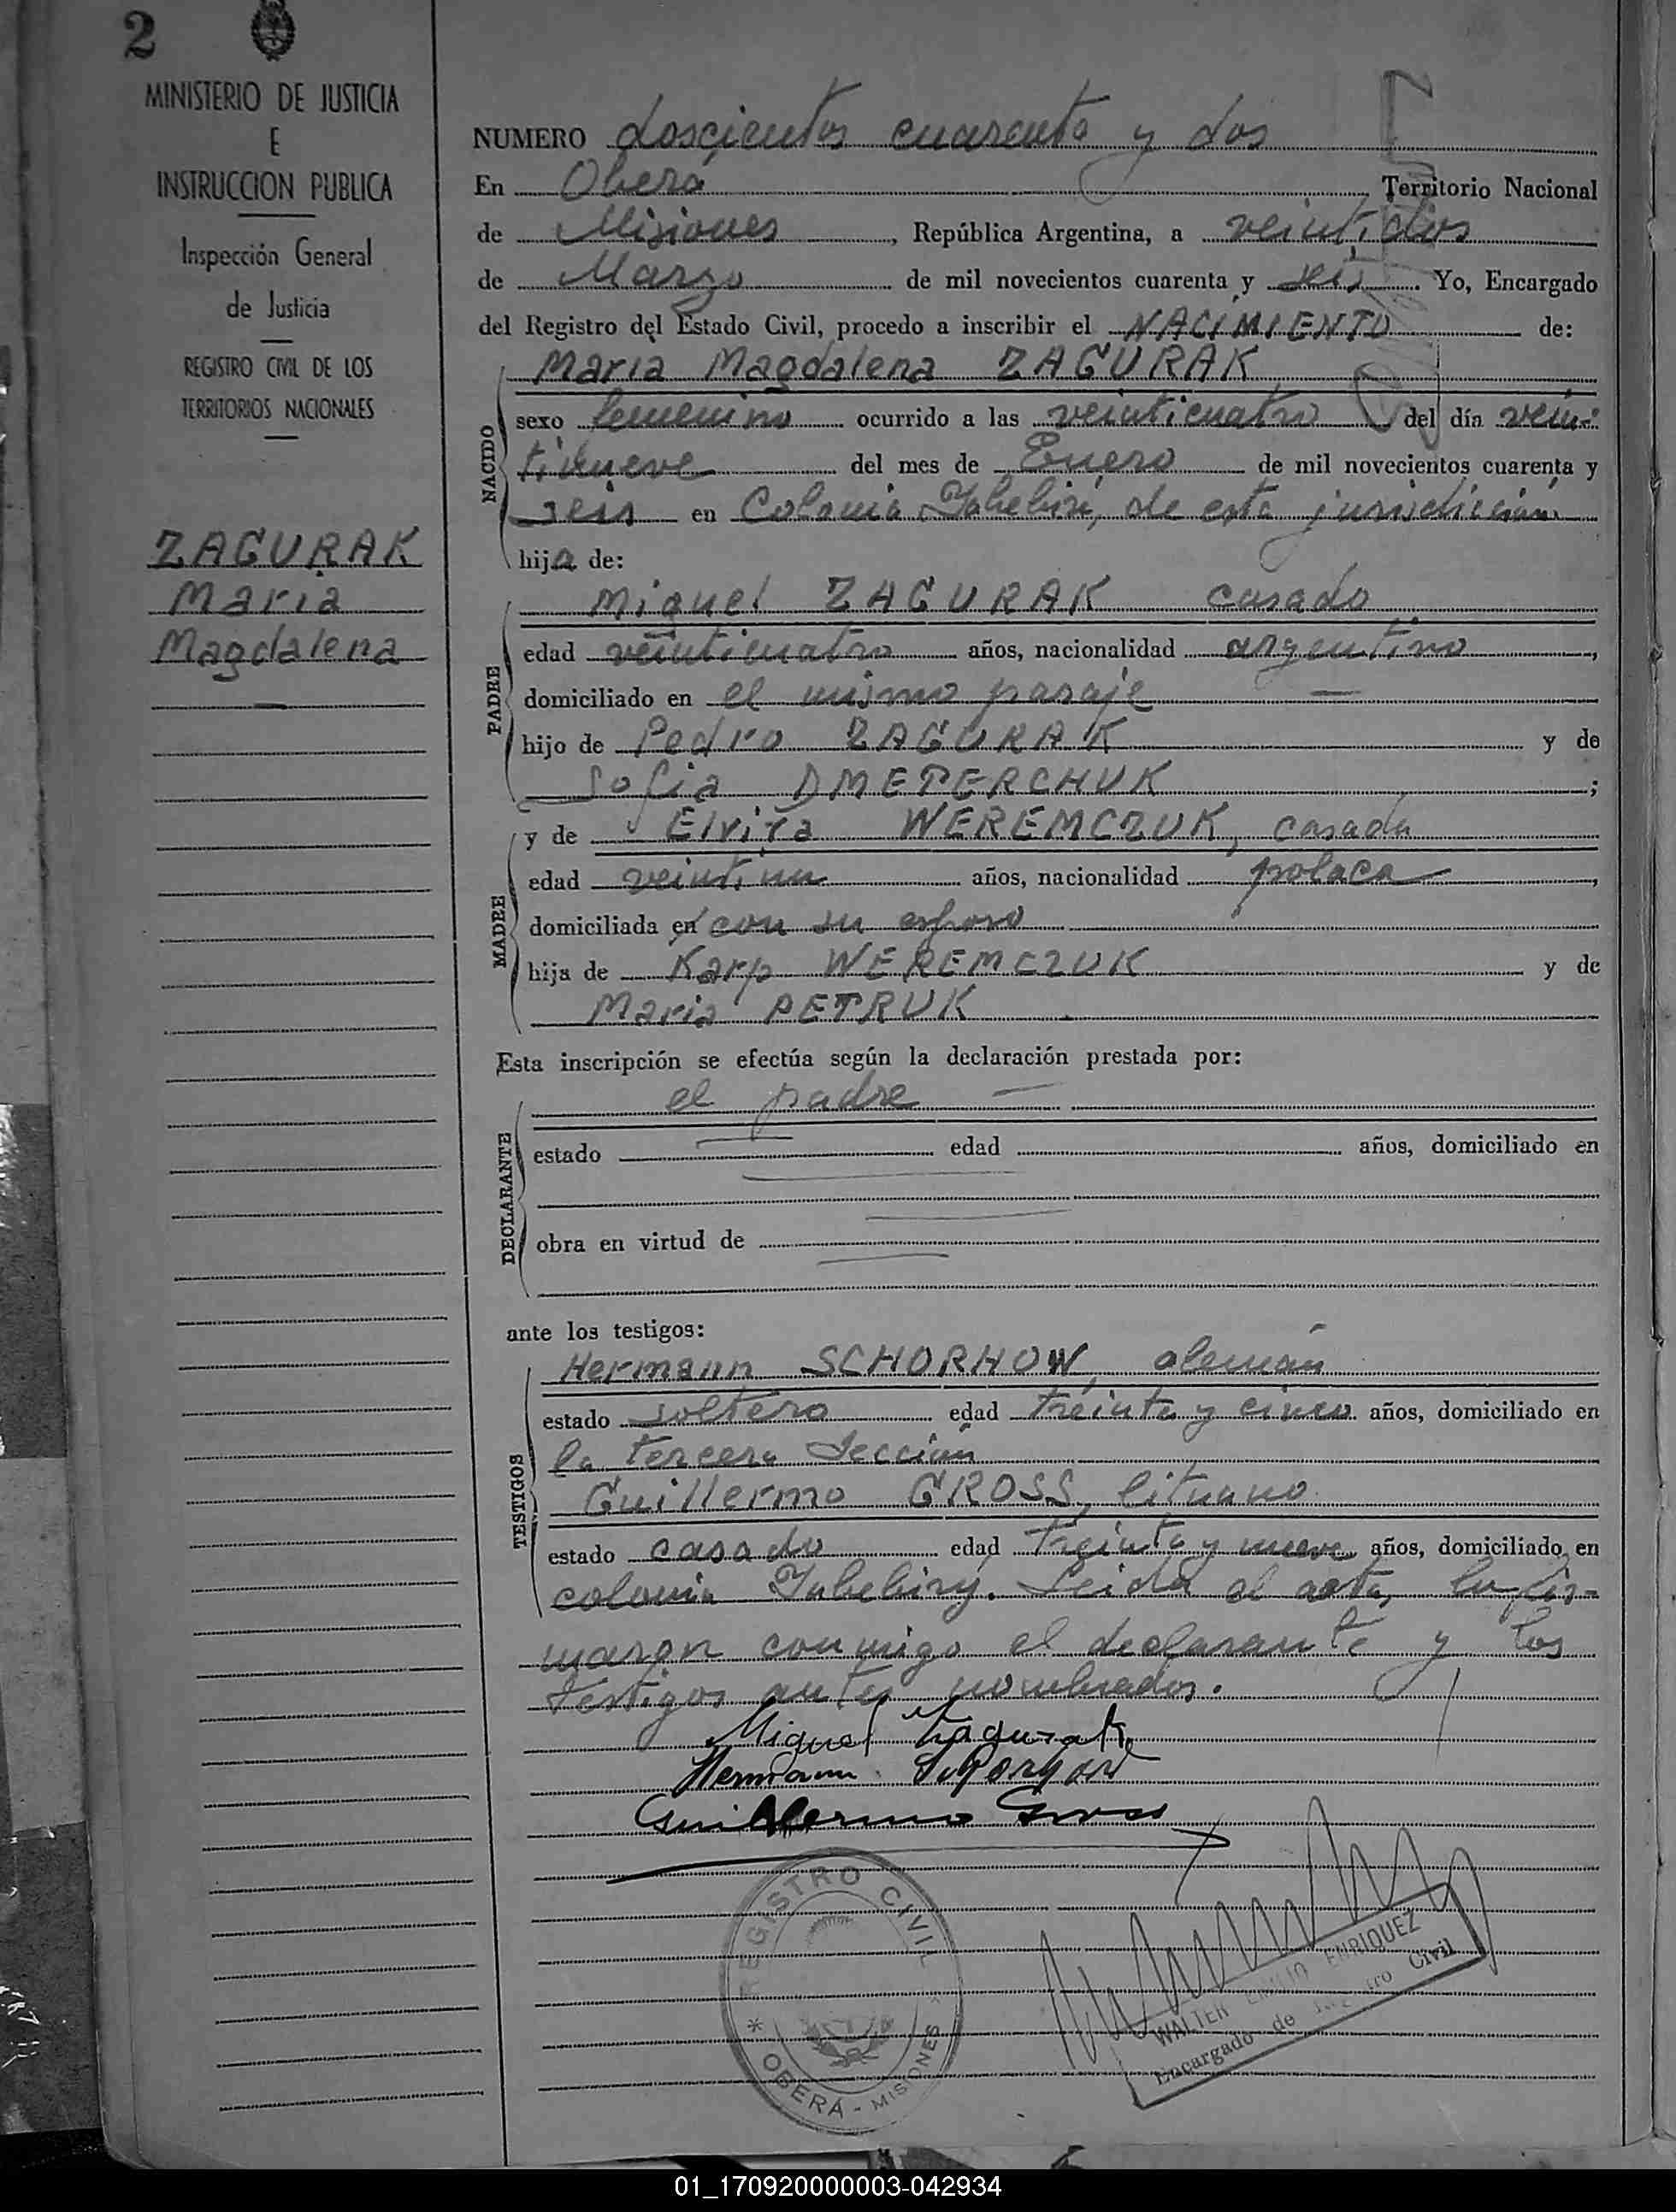 2
MINISTERIO DE JUSTICIA
E
INSTRUCCION PUBLICA
Inspección General
de Justicia
REGISTRO CIVIL DE LOS
TERRITORIOS NACIONALES
ZAGURAK
María
Magdalena
NUMERO doscientos cuarenta y dos
En Oberá Territorio Nacional
de Misiones, República Argentina, a veintidos
de Marzo de mil novecientos cuarenta y seis. Yo, Encargado
del Registro del Estado Civil, procedo a inscribir el NACIMIENTO de:
María Magdalena ZAGURAK
NACIDO
sexo femenino ocurrido a las veinticuatro del día vein-
tinueve del mes de Enero de mil novecientos cuarenta y
seis en Colonia Yabebirí, de esta jurisdicción
hija de:
Miguel ZAGURAK casado
PADRE
edad veinticuatro años, nacionalidad argentino,
domiciliado en el mismo paraje —
hijo de Pedro ZAGURAK y de
Sofia DMETERCHUK;
y de Elvira WEREMCZUK, casada
MADRE
edad veintiun años, nacionalidad polaca,
domiciliada en con su esposo
hija de Karp WEREMCZUK y de
Maria PETRUK
Esta inscripción se efectúa según la declaración prestada por:
el padre —
DECLARANTE
estado edad años, domiciliado en
obra en virtud de
ante los testigos:
Hermann SCHORHOW, alemán
TESTIGOS
estado soltero edad treinta y cinco años, domiciliado en
la tercera Sección
Guillermo GROSS, lituano
estado casado edad treinta y nueve años, domiciliado en
colonia Yabebiry. Leida el acta, la fir-
maron conmigo el declarante y los
testigos antes nombrados.
Miguel Zagurak
Hermann Schorhow
Guillermo Gross
REGISTRO CIVIL
* OBERÁ - MISIONES *
WALTER EMILIO ENRIQUEZ
Encargado de Registro Civil
01_170920000003-042934